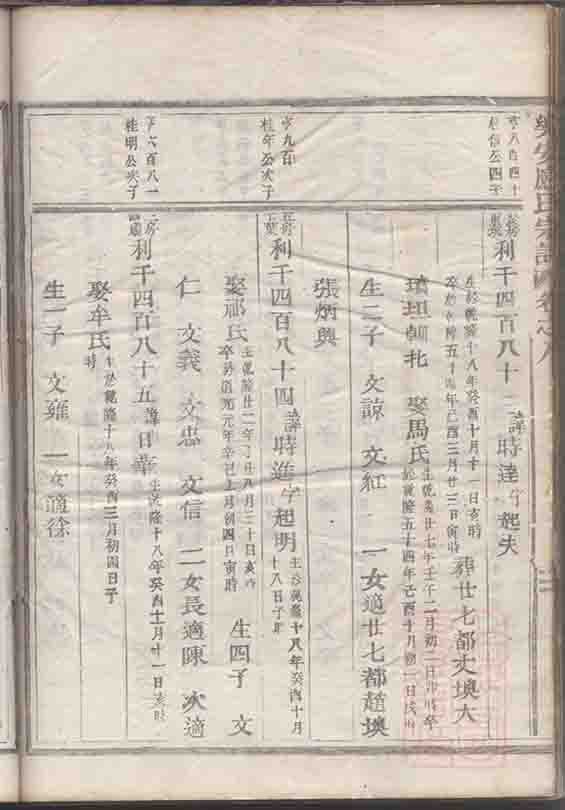 盧氏宗譜 卷之八
亨八百四十
公四子
利千四百八十三諱時達字起夫
生於乾隆十八年癸酉十月十一日亥時
卒於乾隆五十四年己酉三月廿三日寅時
葬廿七都丈墺大
墳坦 娶馬氏
生乾隆廿七年壬午二月初二日 時卒
於乾隆五十四年己酉十月初一日戌時
生二子 文諒 文紅 一女適廿七都趙墺
張炳興
亨九百
桂年公次子
利千四百八十四諱時進字起明
生於乾隆十八年癸酉十月
十八日子時
娶祁氏
生乾隆廿二年丁丑八月三十日亥時
卒於道光元年辛巳七月初四日寅時
生四子 文
仁 文義 文忠 文信 二女長適陳 次適
亨六百八一
桂明公次子
利千四百八十五諱日
生乾隆十八年癸酉十一月廿一日亥時
娶牟氏
生於乾隆十八年癸酉三月初四日子
時
生一子 文雍 一女適徐